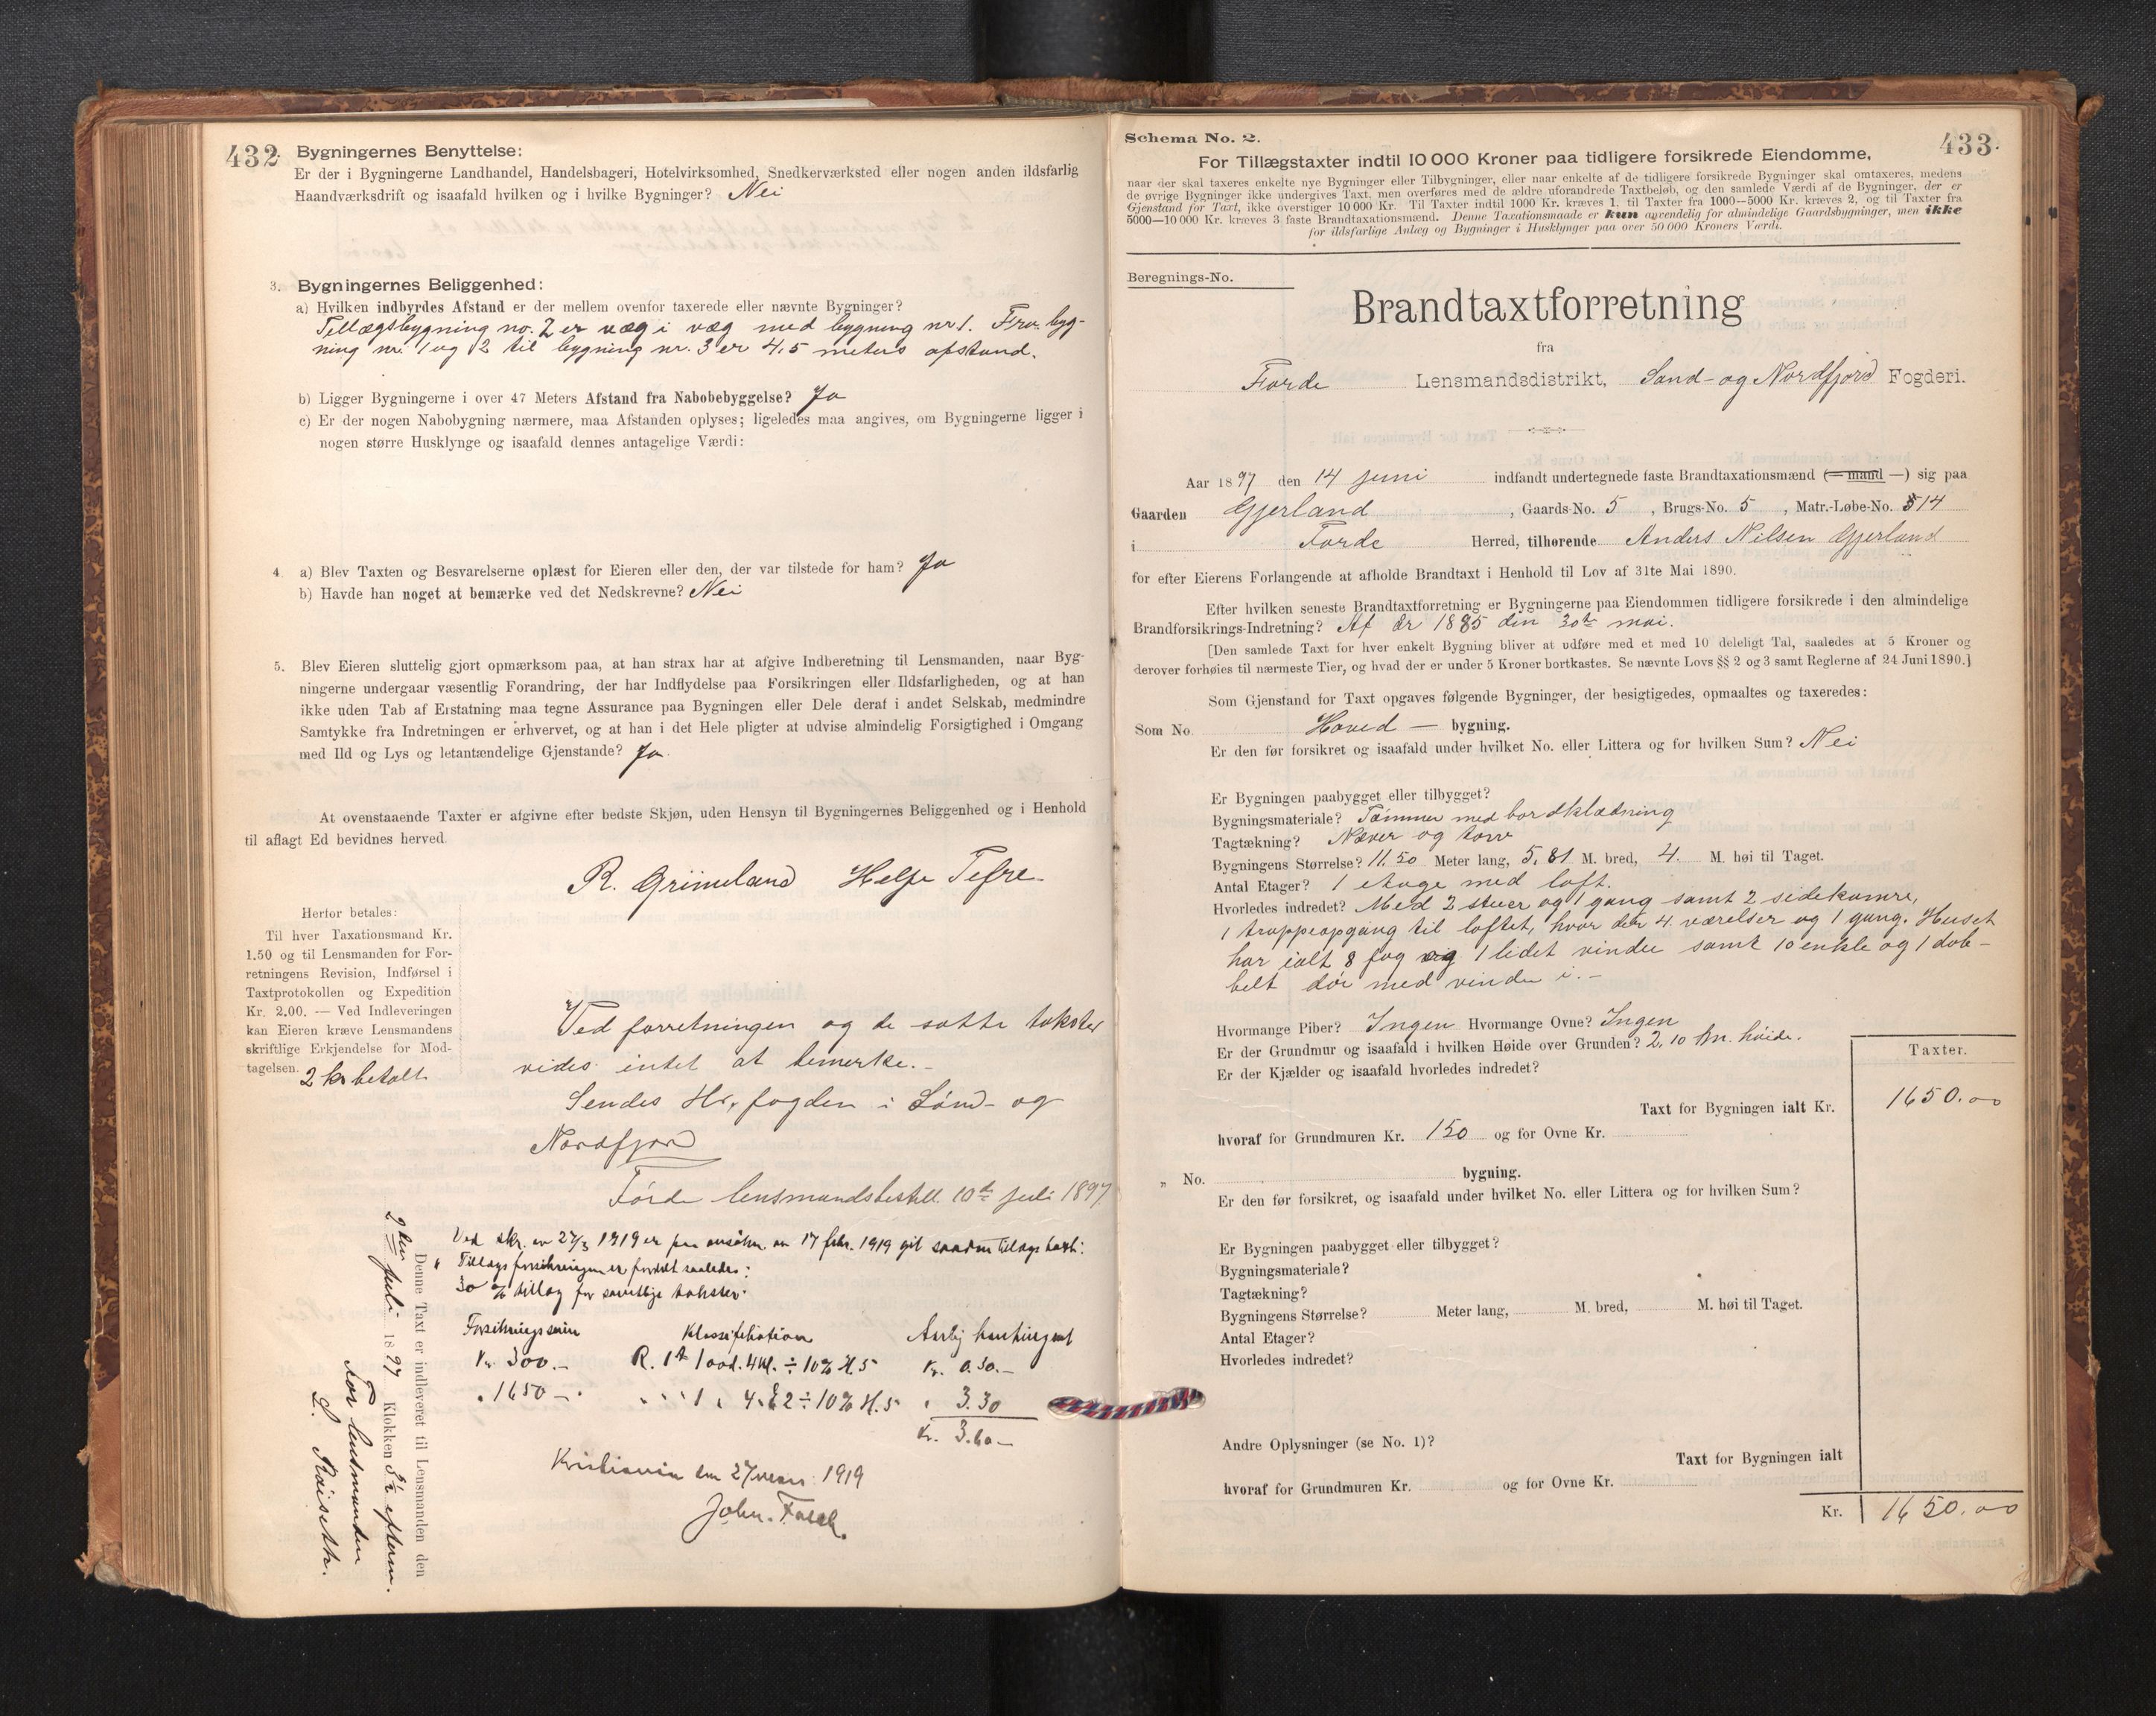 432.
Bygningernes Benyttelse:
Er der i Bygningerne Landhandel, Handelsbageri, Hotelvirksomhed, Snedkerværksted eller nogen anden ildsfarlig
Haandværksdrift og isaafald hvilken og i hvilke Bygninger? Nei
3. Bygningernes Beliggenhed:
a) Hvilken indbyrdes Afstand er der mellem ovenfor taxerede eller nævnte Bygninger?
Tillægsbygning no. 2 er væg i væg med bygning nr 1. Fra byg-
ning nr. 1 og 2 til bygning nr. 3 er 4,5 meters afstand.
b) Ligger Bygningerne i over 47 Meters Afstand fra Nabobebyggelse? Ja
c) Er der nogen Nabobygning nærmere, maa Afstanden oplyses; ligeledes maa angives, om Bygningerne ligger i
nogen større Husklynge og isaafald dennes antagelige Værdi:
4. a) Blev Taxten og Besvarelserne oplæst for Eieren eller den, der var tilstede for ham? Ja
b) Havde han noget at bemærke ved det Nedskrevne? Nei
5. Blev Eieren sluttelig gjort opmærksom paa, at han strax har at afgive Indberetning til Lensmanden, naar Byg-
ningerne undergaar væsentlig Forandring, der har Indflydelse paa Forsikringen eller Ildsfarligheden, og at han
ikke uden Tab af Erstatning maa tegne Assurance paa Bygningen eller Dele deraf i andet Selskab, medmindre
Samtykke fra Indretningen er erhvervet, og at han i det Hele pligter at udvise almindelig Forsigtighed i Omgang
med Ild og Lys og letantændelige Gjenstande? Ja.
At ovenstaaende Taxter er afgivne efter bedste Skjøn, uden Hensyn til Bygningernes Beliggenhed og i Henhold
til aflagt Ed bevidnes herved.
R. Grimeland Helge Tefre
Herfor betales:
Til hver Taxationsmand Kr.
1.50 og til Lensmanden for For-
retningens Revision, Indførsel i
Taxtprotokollen og Expedition
Kr. 2.00. — Ved Indleveringen
kan Eieren kræve Lensmandens
skriftlige Erkjendelse for Mod-
tagelsen. 2 kr betalt.
Ved forretningen og de satte takster
vides intet at bemerke.-
Sendes Hr. fogden i Sønd- og
Nordfjord
Førde lensmandsbestill. 10de juli 1897.
Denne Taxt er indleveret til Lensmanden den
2den juli 1897 Klokken 3½ efterm.
For lensmanden
L. Røiseth.
Ved skr. av 27/3 1919 er paa ansøkn. av 17 febr. 1919 git saadan tillægstakst:
"Tillægsforsikringen er fordelt saaledes:
30 % tillæg for samtlige takster.
Forsikringssum Klassifikation Aarlig kontingent
Kr. 300.- R. 1ste 1 avd. 4 kl. ÷ 10% H.5 Kr. 0.30.-
" 1650 -. " " 1 " 4. E2 ÷ 10% H.5 " 3.30
Kr. 3.60 -
Kristiania den 27 mars 1919
John. Falch.
433.
Schema No. 2.
For Tillægstaxter indtil 10 000 Kroner paa tidligere forsikrede Eiendomme,
naar der skal taxeres enkelte nye Bygninger eller Tilbygninger, eller naar enkelte af de tidligere forsikrede Bygninger skal omtaxeres, medens
de øvrige Bygninger ikke undergives Taxt, men overføres med de ældre uforandrede Taxtbeløb, og den samlede Værdi af de Bygninger, der er
Gjenstand for Taxt, ikke overstiger 10 000 Kr. Til Taxter indtil 1000 Kr. kræves 1, til Taxter fra 1000—5000 Kr. kræves 2, og til Taxter fra
5000—10 000 Kr. kræves 3 faste Brandtaxationsmænd. Denne Taxationsmaade er kun anvendelig for almindelige Gaardsbygninger, men ikke
for ildsfarlige Anlæg og Bygninger i Husklynger paa over 50 000 Kroners Værdi.
Beregnings-No.
Brandtaxtforretning
fra
Førde Lensmandsdistrikt, Sønd- og Nordfjord Fogderi.
Aar 1897 den 14 juni indfandt undertegnede faste Brandtaxationsmænd (— mand —) sig paa
Gaarden Gjerland, Gaards-No. 5, Brugs-No. 5, Matr.-Løbe-No. 514
i Førde Herred, tilhørende Anders Nilsen Gjerland
for efter Eierens Forlangende at afholde Brandtaxt i Henhold til Lov af 31te Mai 1890.
Efter hvilken seneste Brandtaxtforretning er Bygningerne paa Eiendommen tidligere forsikrede i den almindelige
Brandforsikrings-Indretning? Af år 1885 den 30te mai.
[Den samlede Taxt for hver enkelt Bygning bliver at udføre med et med 10 deleligt Tal, saaledes at 5 Kroner og
derover forhøies til nærmeste Tier, og hvad der er under 5 Kroner bortkastes. Se nævnte Lovs §§ 2 og 3 samt Reglerne af 24 Juni 1890.]
Som Gjenstand for Taxt opgaves følgende Bygninger, der besigtigedes, opmaaltes og taxeredes:
Som No. Hoved — bygning.
Er den før forsikret og isaafald under hvilket No. eller Littera og for hvilken Sum? Nei
Er Bygningen paabygget eller tilbygget?
Bygningsmateriale? Tømmer med bordklædning
Tagtækning? Næver og torv
Bygningens Størrelse? 11,50 Meter lang, 5,81 M. bred, 4. M. høi til Taget.
Antal Etager? 1 etage med loft.
Hvorledes indredet? Med 2 stuer og 1 gang samt 2 sidekamre,
1 trappeopgang til loftet, hvor der 4 værelser og 1 gang. Huset
har ialt 8 fag og 1 lidet vindu samt 10 enkle og 1 dob-
belt dør med vindu i. -
Hvormange Piber? Ingen Hvormange Ovne? Ingen
Er der Grundmur og isaafald i hvilken Høide over Grunden? 2,10 m. høide.
Er der Kjælder og isaafald hvorledes indredet?
Taxter.
Taxt for Bygningen ialt Kr. 1650.00
hvoraf for Grundmuren Kr. 150 og for Ovne Kr.
„ No. bygning.
Er den før forsikret, og isaafald under hvilket No. eller Littera og for hvilken Sum?
Er Bygningen paabygget eller tilbygget?
Bygningsmateriale?
Tagtækning?
Bygningens Størrelse? Meter lang, M. bred, M. høi til Taget.
Antal Etager?
Hvorledes indredet?
Andre Oplysninger (se No. 1)?
Taxt for Bygningen ialt
hvoraf for Grundmuren Kr. og for Ovne Kr.
Kr. 1650.00